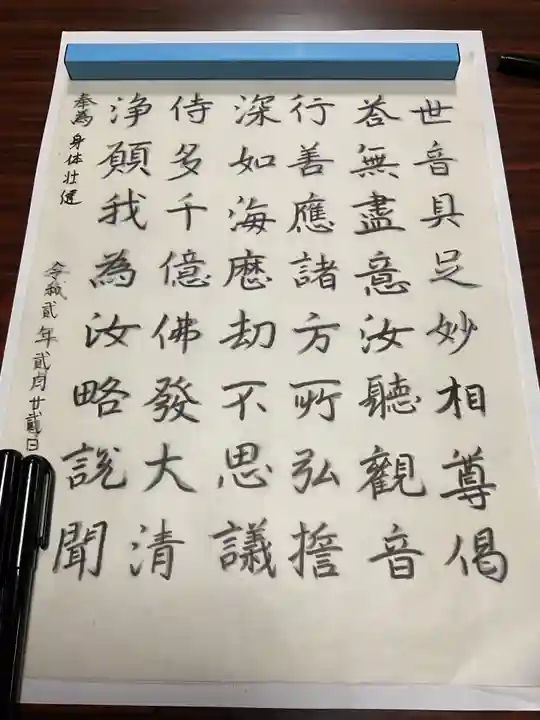 世音具足妙相尊偈
荅無盡意汝聽觀音
行善應諸方所弘誓
深如海歷劫不思議
侍多千億佛發大清
浄願我為汝略說聞
奉為 身体壮健
令和貳年貳月廿貳日